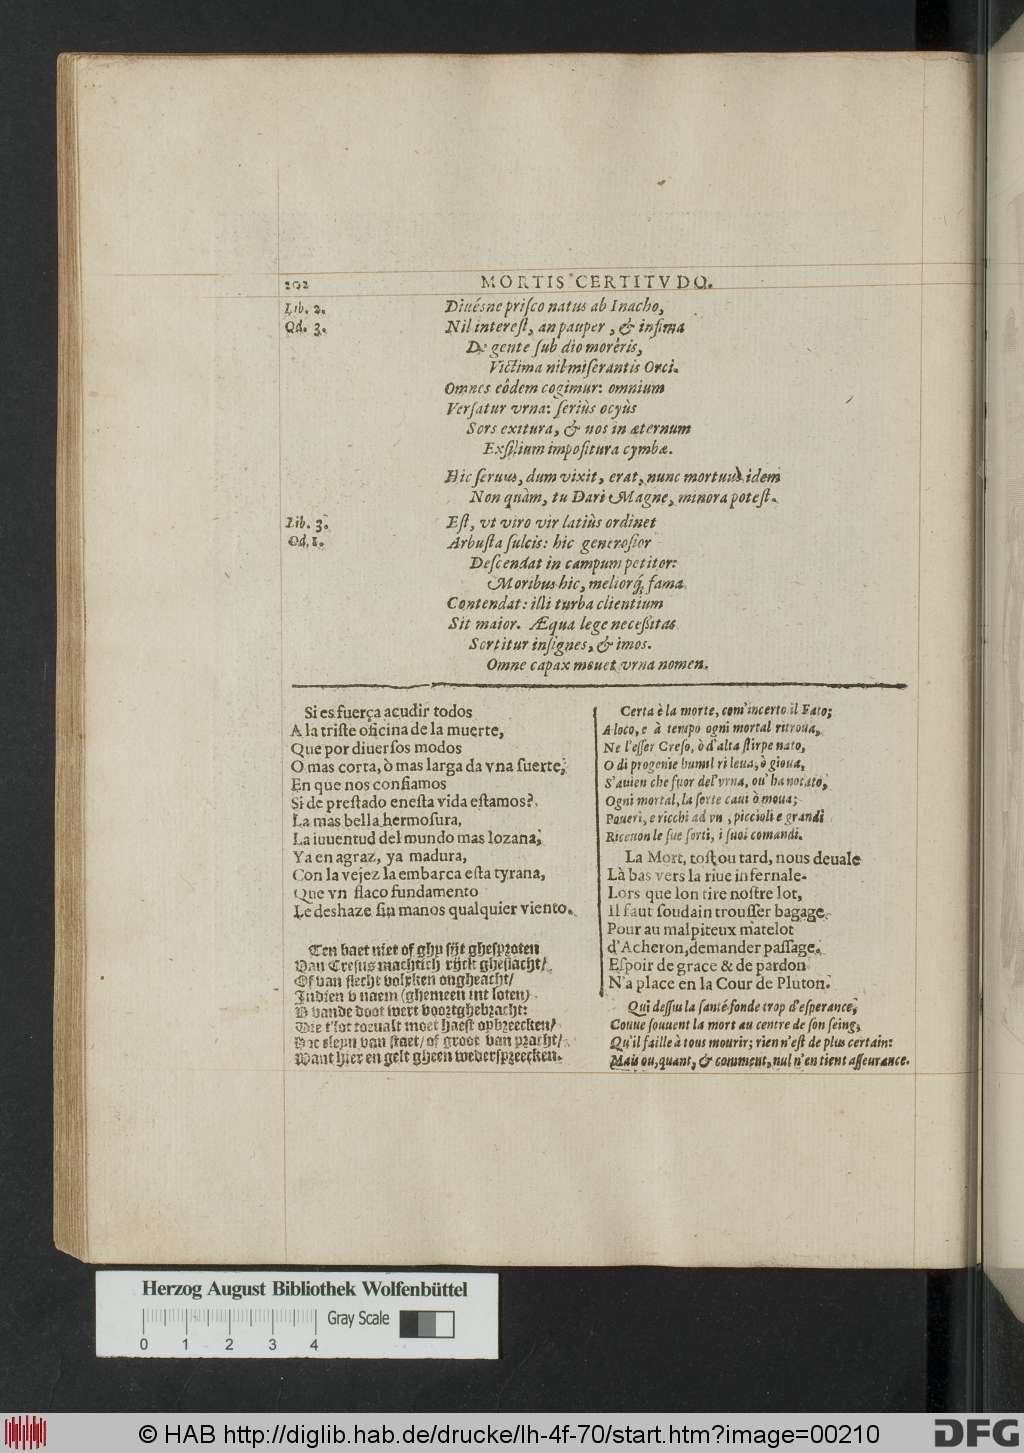 202 MORTIS CERTITVDO.
Lib. 2. Diuésne priſco natus ab Inacho,
Od. 3. Nil intereſt, an pauper, & infima
De gente ſub dio moréris,
Victima nil miſerantis Orci.
Omnes eôdem cogimur: omnium
Verſatur vrna: ſeriùs ocyùs
Sors exitura, & nos in æternum
Exſilium impoſitura cymbæ.
Hic ſeruus, dum vixit, erat, nunc mortuus idem
Non quàm, tu Dari Magne, minora poteſt.
Lib. 3. Eſt, vt viro vir latiùs ordinet
Od. 1. Arbuſta ſulcis: hic generoſior
Deſcendat in campum petitor:
Moribus hic, meliorq́; fama
Contendat: illi turba clientium
Sit maior. Æqua lege neceßitas
Sortitur inſignes, & imos.
Omne capax mouet vrna nomen.
Si es fuerça acudir todos
A la triſte oficina de la muerte,
Que por diuerſos modos
O mas corta, ò mas larga da vna ſuerte;
En que nos confiamos
Si de preſtado en eſta vida eſtamos?
La mas bella hermoſura,
La iuuentud del mundo mas lozana;
Ya en agraz, ya madura,
Con la vejez la embarca eſta tyrana,
Que vn flaco fundamento
Le deshaze ſin manos qualquier viento.
Ten baet niet of ghy ſijt gheſproten
Van Creſus machtich rijck gheſlacht/
Of van ſlecht volxken ongheacht/
Indien v naem (ghemeen int loten)
V vande doot wert voortghebracht:
Wie t'lot toeualt moet haeſt opbreecken/
ſleyp van ſtaet/ of groot van pracht/
Want hier en gelt gheen wederſpreecken.
Certa è la morte, com'incerto il Fato;
A loco, e à tempo ogni mortal ritroua,
Ne l'eſſer Creſo, ò d'alta ſtirpe nato,
O di progenie humil ri leua, ò gioua,
S'auien che fuor del'vrna, ou' ha notato;
Ogni mortal, la ſorte caui ò moua;
Poueri, e ricchi ad vn, piccioli e grandi
Riceuon le ſue ſorti, i ſuoi comandi.
La Mort, toſt ou tard, nous deuale
Là bas vers la riue infernale.
Lors que lon tire noſtre lot,
Il faut ſoudain trouſſer bagage,
Pour au mal piteux matelot
d'Acheron, demander paſſage.
Eſpoir de grace & de pardon
N'a place en la Cour de Pluton.
Qui deſſus la ſanté fonde trop d'eſperance,
Couue ſouuent la mort au centre de ſon ſeing,
Qu'il faille à tous mourir; rien n'eſt de plus certain:
Mais ou, quant, & comment, nul n'en tient aſſeurance.
Herzog August Bibliothek Wolfenbüttel
Gray Scale
0 1 2 3 4
© HAB http://diglib.hab.de/drucke/lh-4f-70/start.htm?image=00210
DFG